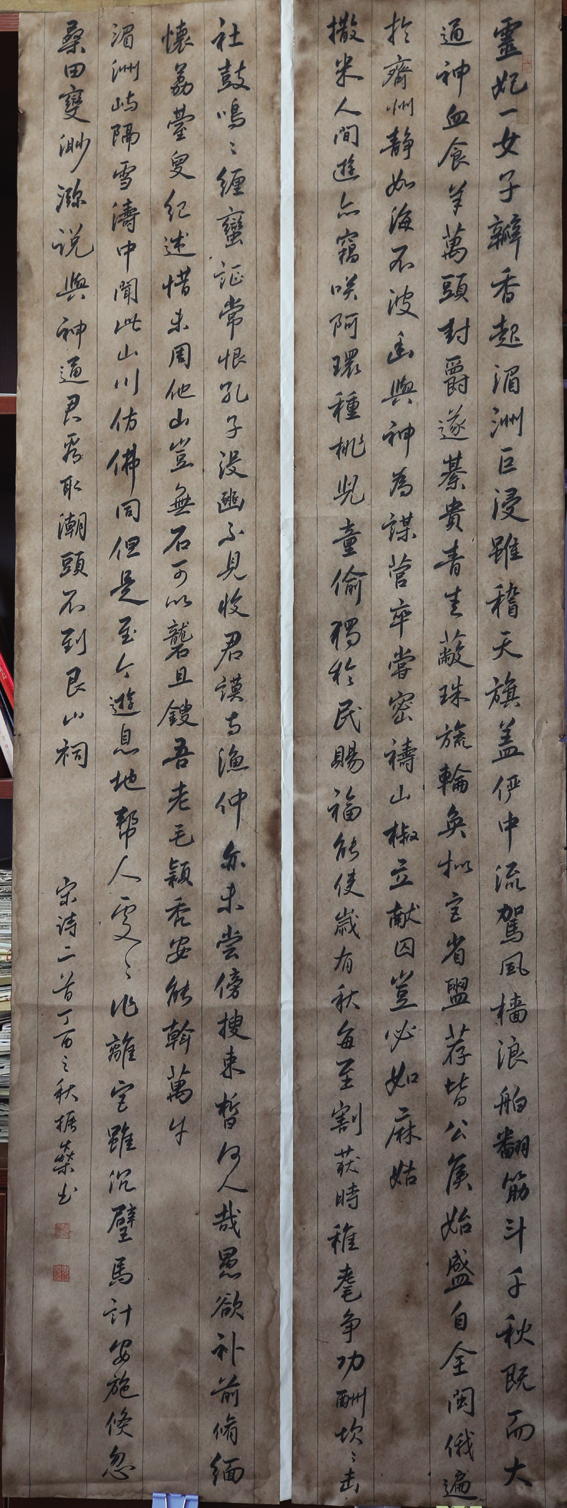 靈妃一女子瓣香起湄洲巨浸雖稽天旗蓋儼中流駕風檣浪舶翻筋斗千秋既而大
通神血食羊萬頭封爵遂綦貴青圭蔽珠旒輪奐擬宮省盥荐皆公侯始盛自全閩俄遍
於齊州靜如海不波幽與神為謀營卒嘗密禱山椒立献囚豈必如麻姑
撒米人間遊亦竊咲阿環種桃兒童偷獨於民賜福能使歲有秋每至割获時稚耄争功酬坎〻击
社鼓鳴〻纏蠻謳常恨孔子没豳不見收君謨与漁仲亦未尝傍搜束晳何人哉愚欲补前脩緬
懷荔薹叟纪述惜未周他山豈無石可以礱且鎪吾老毛穎秃安能斡萬牛
湄洲屿隔雪濤中聞此山川仿佛同但是至今遊息地帮人處〻作離宫雖沉璧馬計安施倏忽
桑田變渺瀰説與神通君看取潮頭不到艮山祠
宋诗二首丁酉之秋振榮书